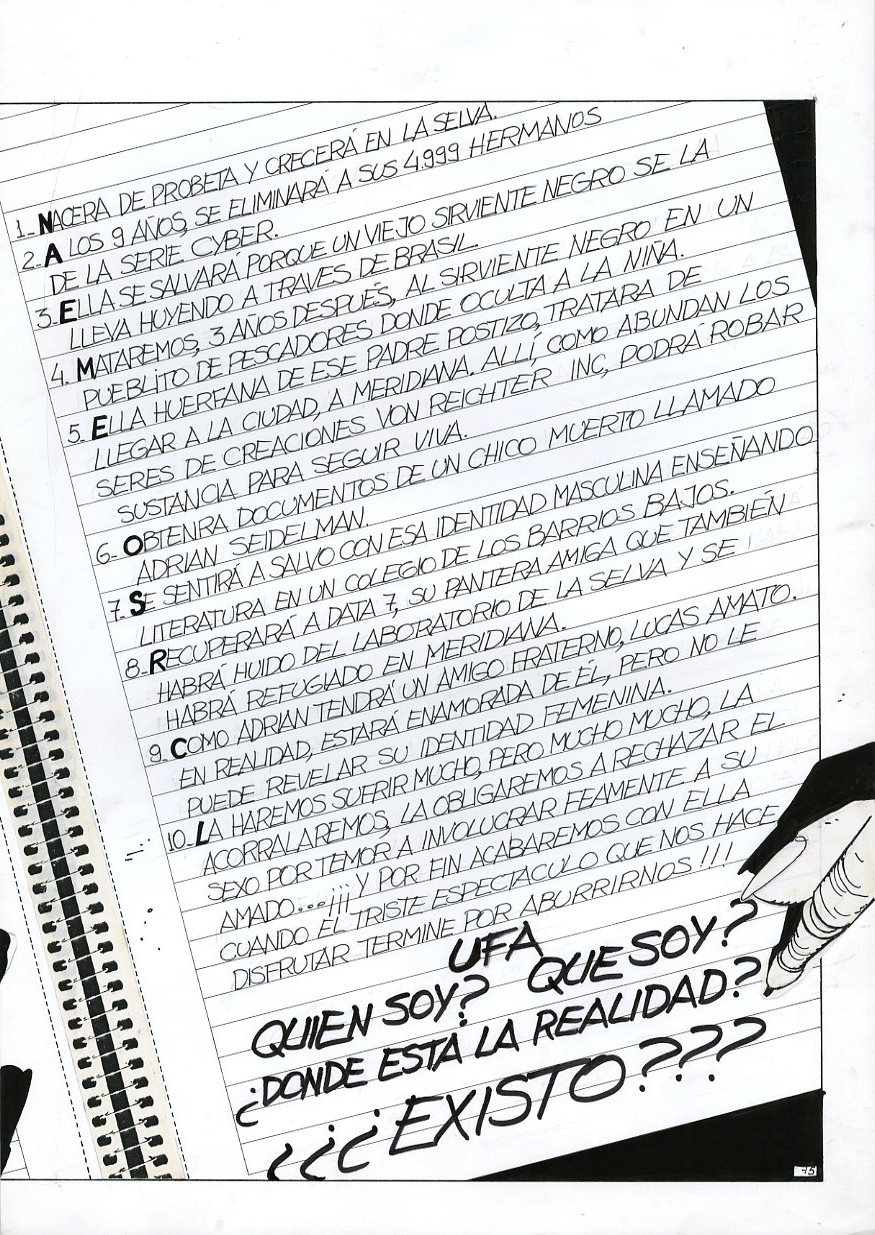 1_ NACERA DE PROBETA Y CRECERÁ EN LA SELVA.
2_ A LOS 9 AÑOS, SE ELIMINARÁ A SUS 4.999 HERMANOS
DE LA SERIE CYBER.
3_ ELLA SE SALVARÁ PORQUE UN VIEJO SIRVIENTE NEGRO SE LA
LLEVA HUYENDO A TRAVES DE BRASIL.
4_ MATAREMOS, 3 AÑOS DESPUÉS, AL SIRVIENTE NEGRO EN UN
PUEBLITO DE PESCADORES DONDE OCULTA A LA NIÑA.
5_ ELLA HUERFANA DE ESE PADRE POSTIZO, TRATARA DE
LLEGAR A LA CIUDAD, A MERIDIANA. ALLÍ, COMO ABUNDAN LOS
SERES DE CREACIONES VON REIGHTER INC, PODRÁ ROBAR
SUSTANCIA PARA SEGUIR VIVA.
6_ OBTENRA DOCUMENTOS DE UN CHICO MUERTO LLAMADO
ADRIAN SEIDELMAN.
7_ SE SENTIRÁ A SALVO CON ESA IDENTIDAD MASCULINA ENSEÑANDO
LITERATURA EN UN COLEGIO DE LOS BARRIOS BAJOS.
8_ RECUPERARÁ A DATA 7, SU PANTERA AMIGA QUE TAMBIÉN
HABRÁ HUIDO DEL LABORATORIO DE LA SELVA Y SE
HABRÁ REFUGIADO EN MERIDIANA.
9_ COMO ADRIAN TENDRÁ UN AMIGO FRATERNO, LUCAS AMATO.
EN REALIDAD, ESTARÁ ENAMORADA DE ÉL, PERO NO LE
PUEDE REVELAR SU IDENTIDAD FEMENINA.
10_ LA HAREMOS SUFRIR MUCHO, PERO MUCHO MUCHO, LA
ACORRALAREMOS, LA OBLIGAREMOS A RECHAZAR EL
SEXO POR TEMOR A INVOLUCRAR FEAMENTE A SU
AMADO...¡¡¡ Y POR FIN ACABAREMOS CON ELLA
CUANDO EL TRISTE ESPECTACULO QUE NOS HACE
DISFRUTAR TERMINE POR ABURRIRNOS!!!
UFA
QUIEN SOY? QUE SOY?
¿DONDE ESTÁ LA REALIDAD?
¿¿¿EXISTO???
75